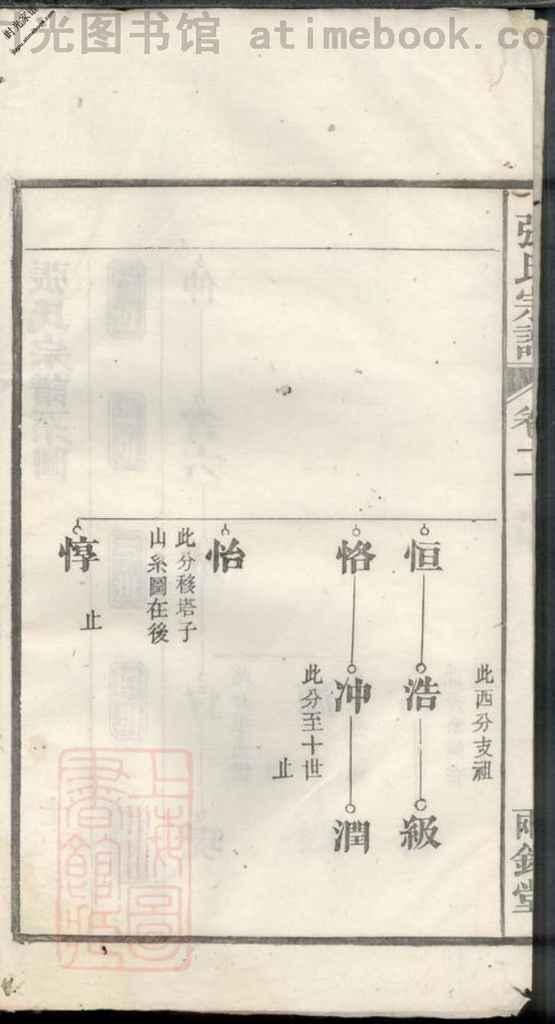 光图书馆 atimebook.co
張氏宗譜
卷二
恒
浩
級
此西分支祖
恪
冲
潤
此分至十世
止
怡
此分移塔子
山系圖在後
惇
止
上海圖
書館藏